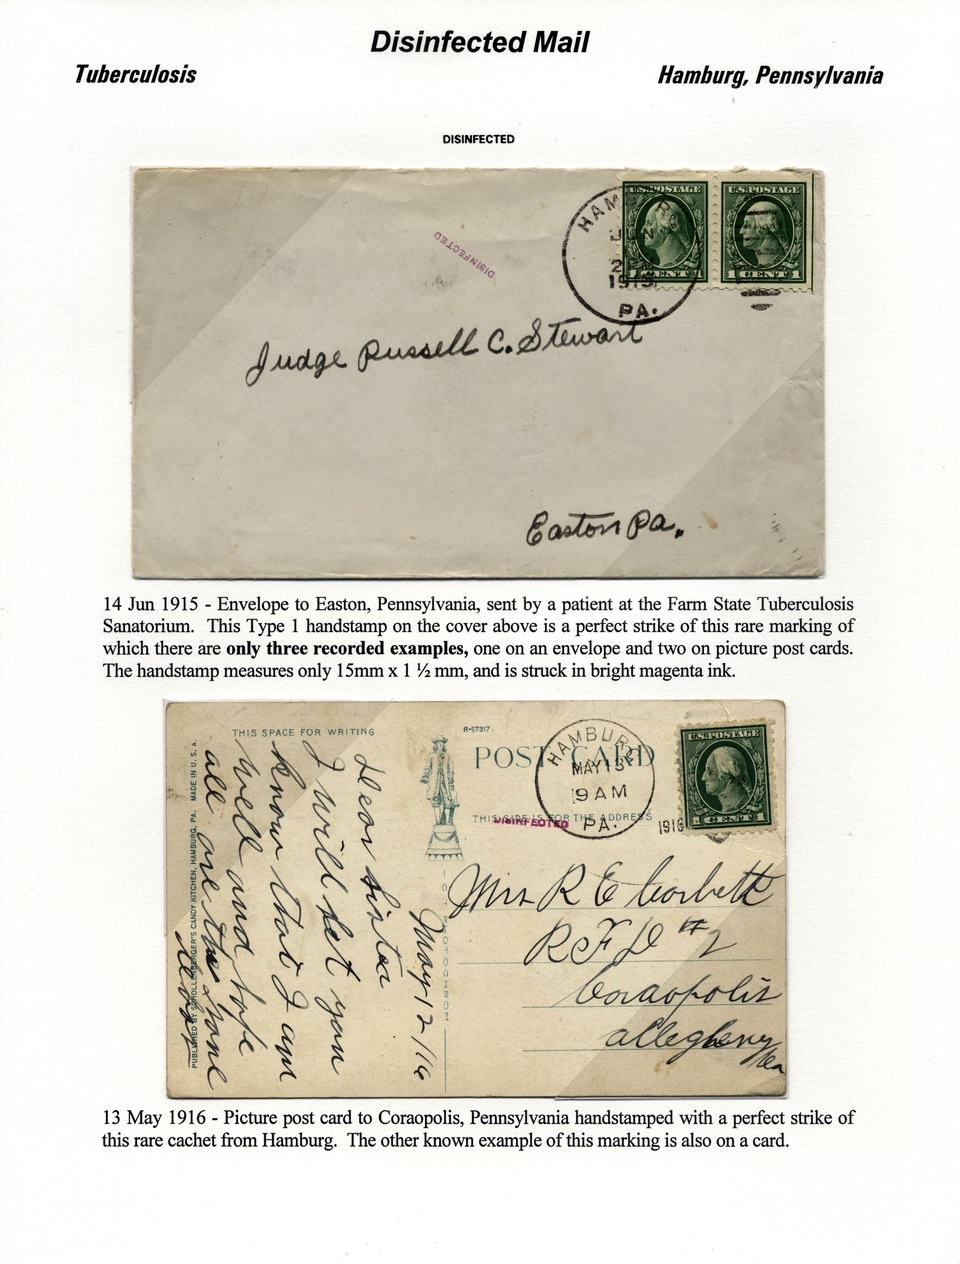 Disinfected Mail
Tuberculosis
Hamburg, Pennsylvania
DISINFECTED
HAMBURG
2
1915
PA.
U.S. POSTAGE
1 CENT 1
U.S. POSTAGE
1 CENT 1
DISINFECTED
Judge Russell C. Stewart
Easton Pa.
14 Jun 1915 - Envelope to Easton, Pennsylvania, sent by a patient at the Farm State Tuberculosis
Sanatorium. This Type 1 handstamp on the cover above is a perfect strike of this rare marking of
which there are only three recorded examples, one on an envelope and two on picture post cards.
The handstamp measures only 15mm x 1 ½ mm, and is struck in bright magenta ink.
THIS SPACE FOR WRITING
R-57317
POST CARD
THIS SIDE IS FOR THE ADDRESS
HAMBURG
MAY 13
9 AM
PA.
1916
U.S. POSTAGE
1 CENT 1
DISINFECTED
May 12/16
Dear Sister
I will let you
know that I am
well and hope
all are the same
PUBLISHED BY SCHOLLENBERGER'S CANDY KITCHEN, HAMBURG, PA. MADE IN U.S.A.
Mrs R E Corbett
R F D #2
Coraopolis
Allegheny
Pa
13 May 1916 - Picture post card to Coraopolis, Pennsylvania handstamped with a perfect strike of
this rare cachet from Hamburg. The other known example of this marking is also on a card.